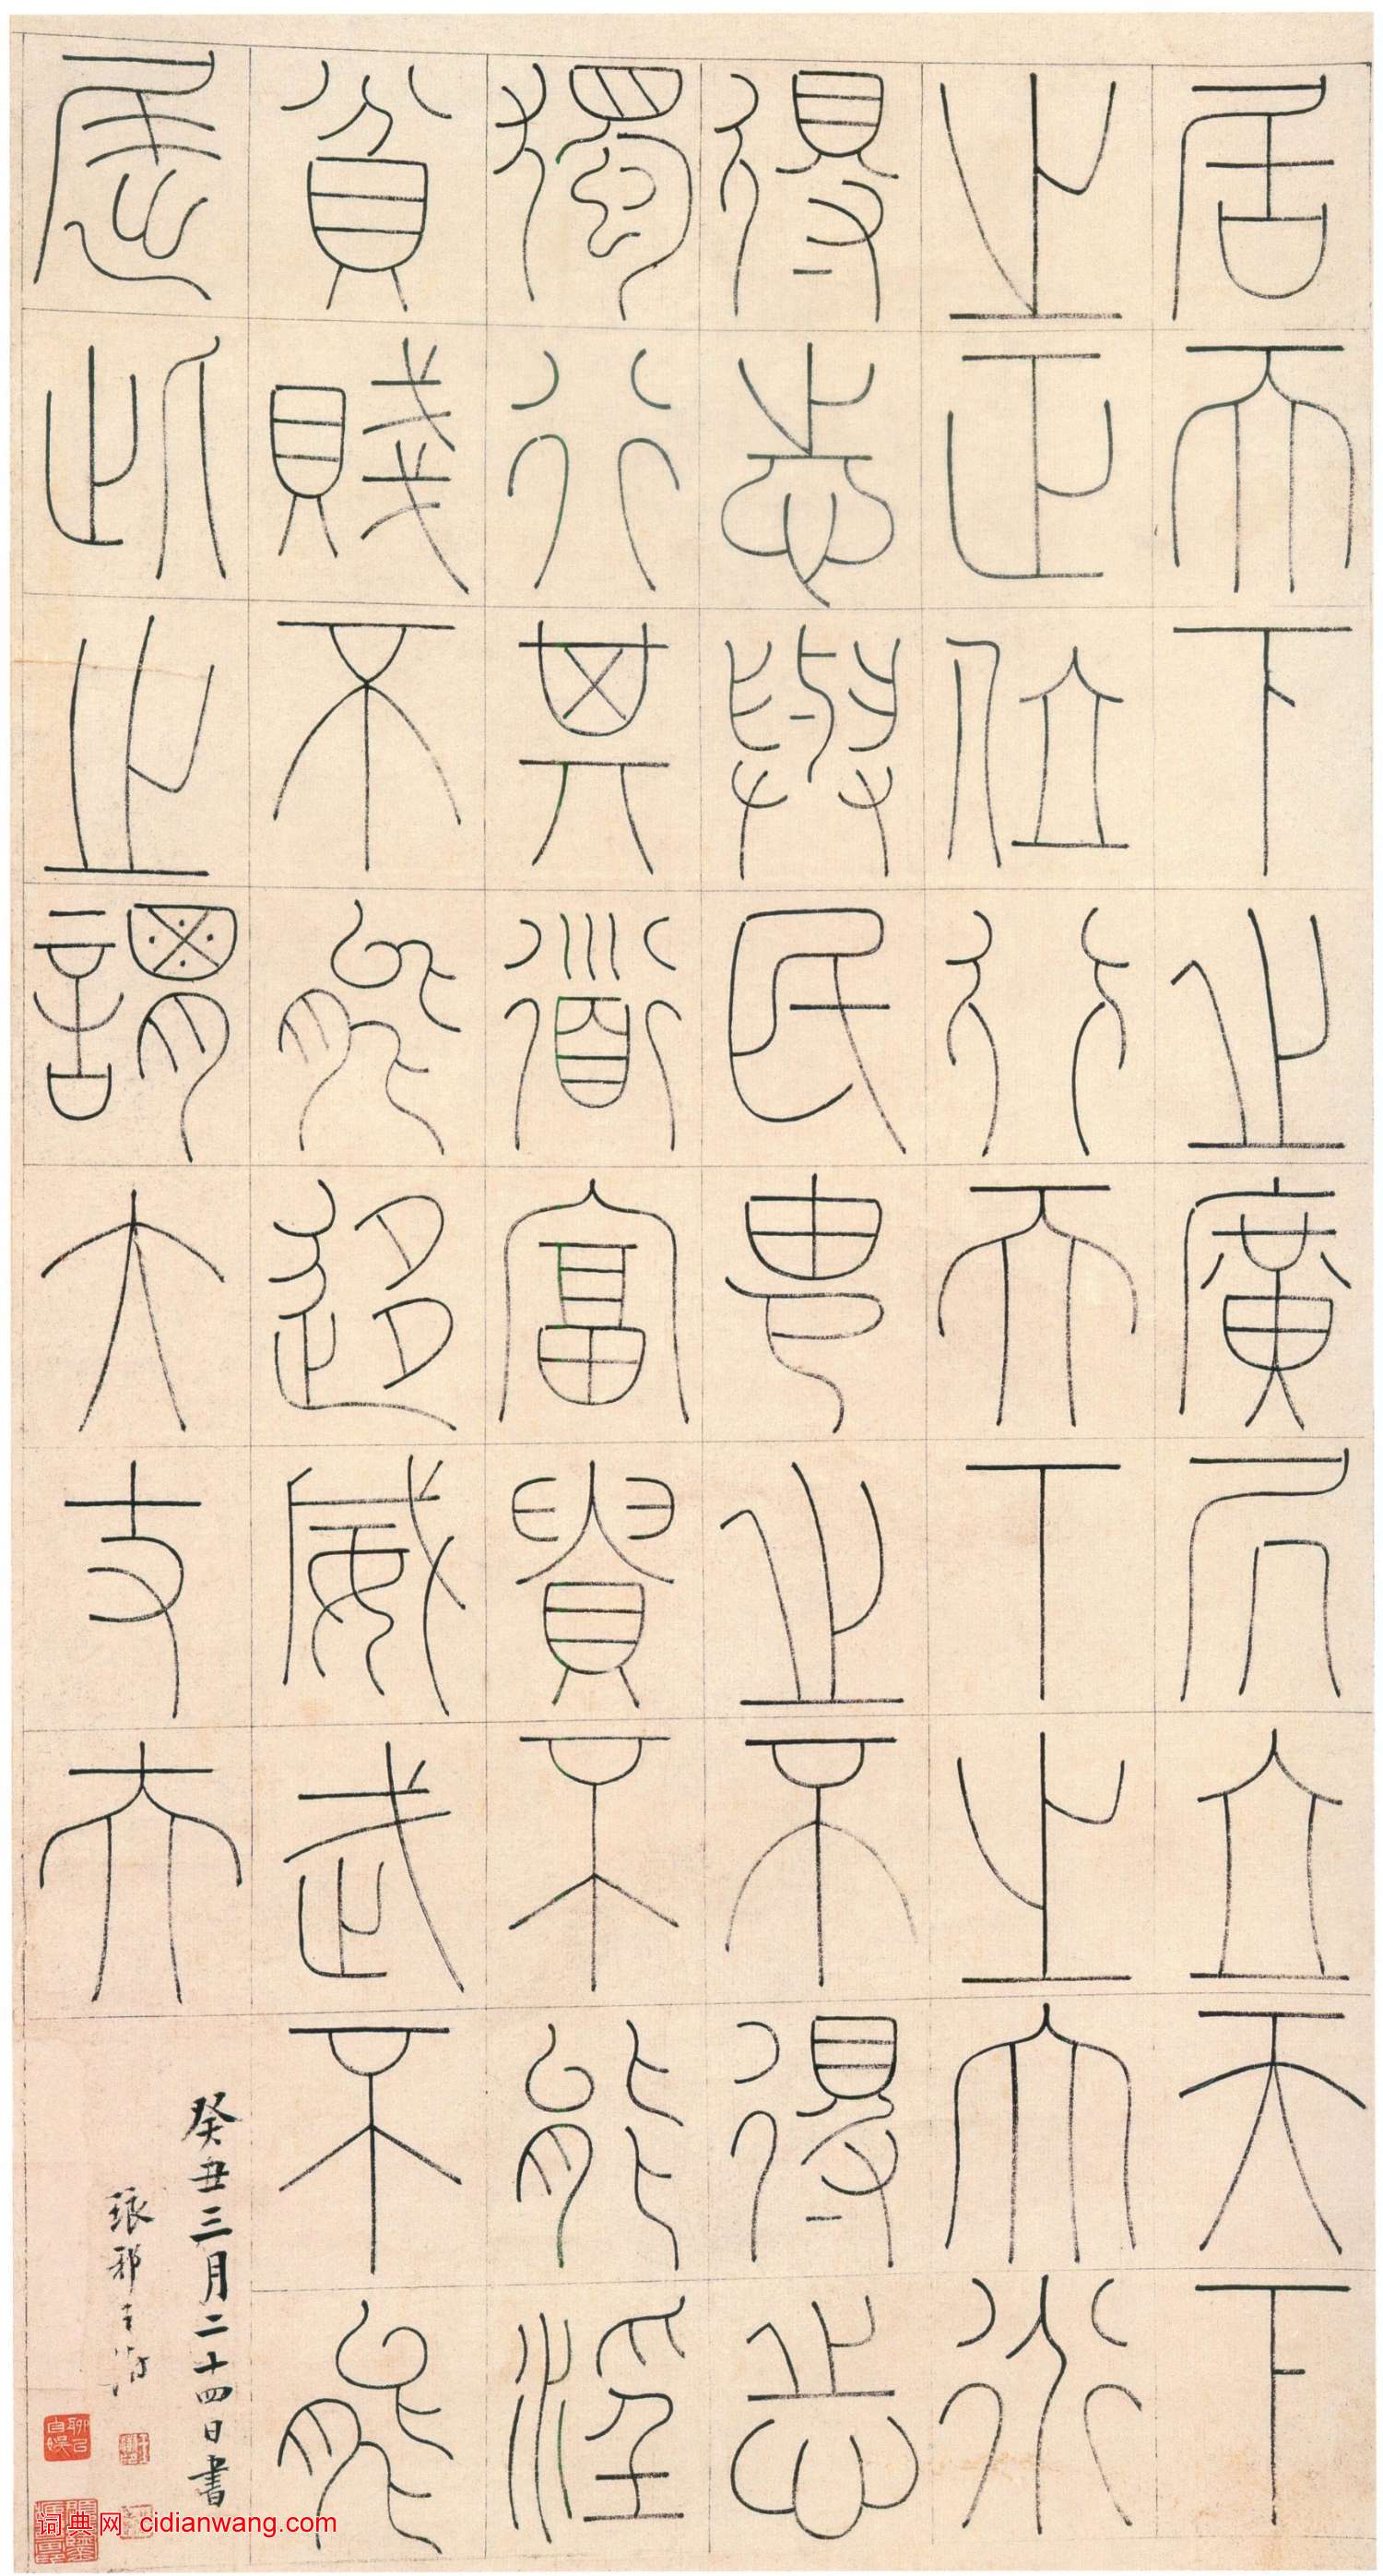 居天下之廣居立天下
之正位行天下之大道
得志與民由之不得志
獨行其道富貴不能淫
貧賤不能移威武不能
屈此之謂大丈夫
癸丑三月二十四日書
琅邪王澍
聊以自娛
词典网 cidianwang.com